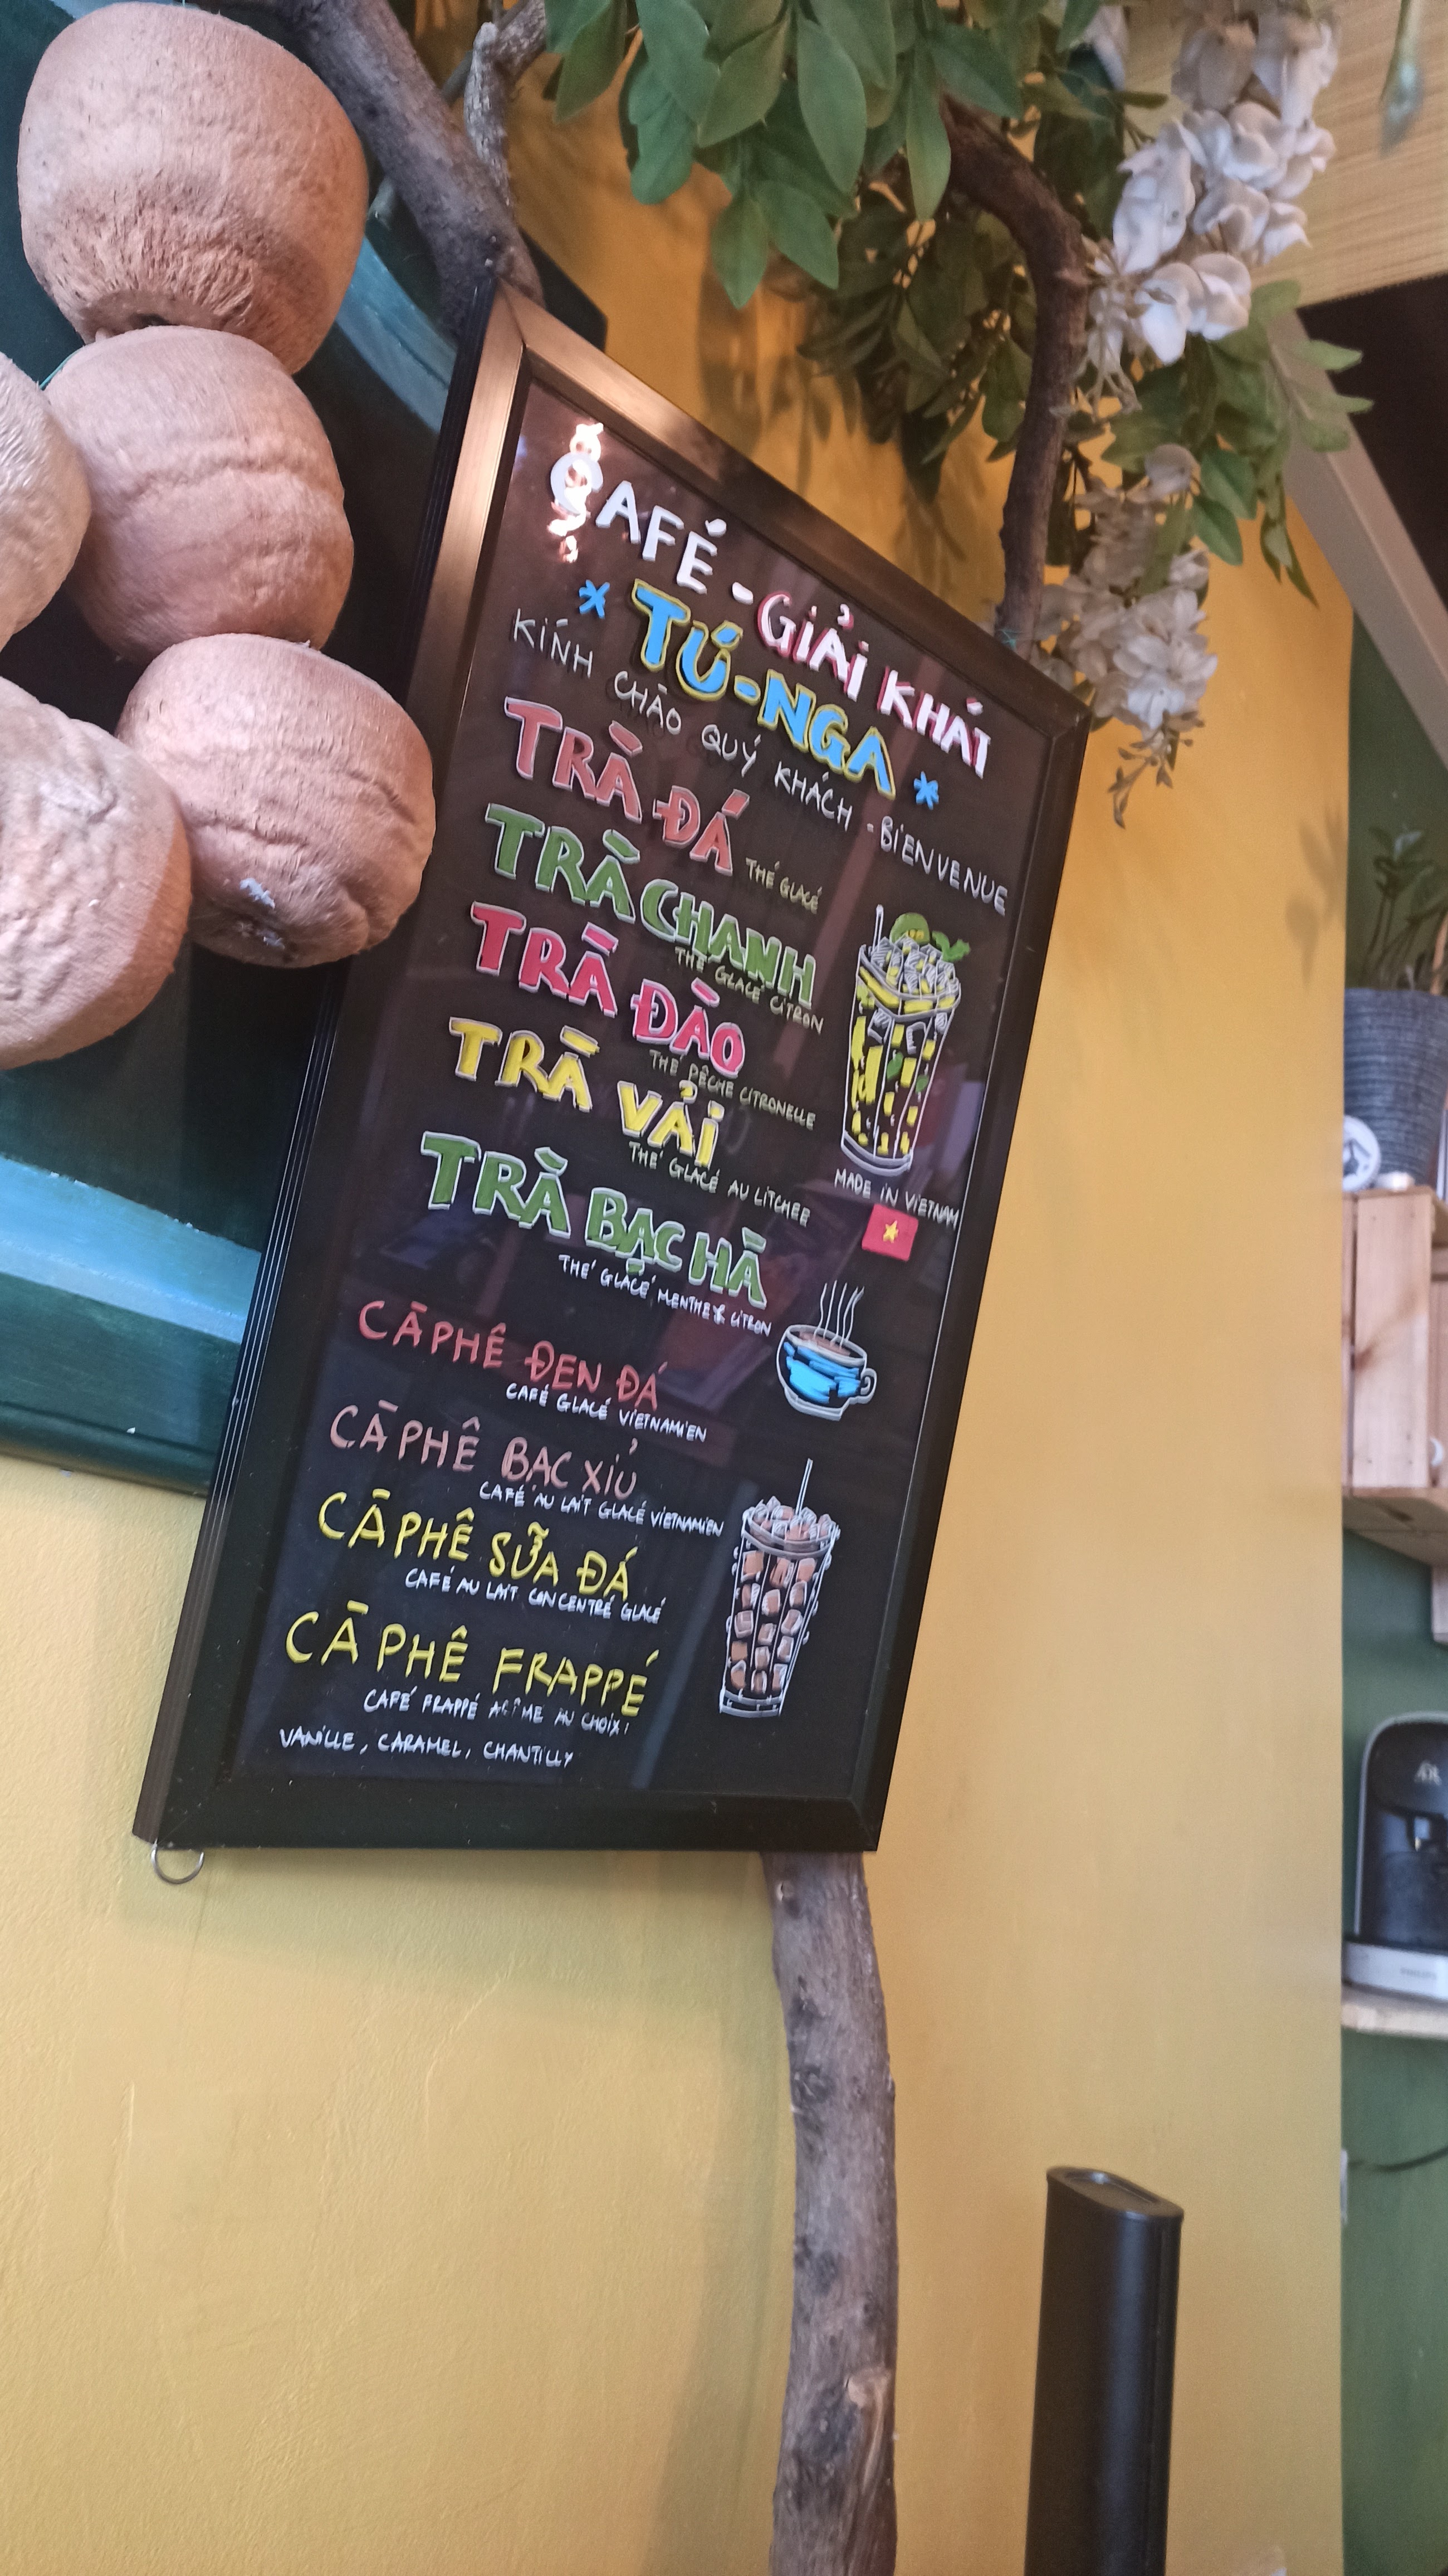 CAFÉ - GIẢI KHÁT
* TÚ-NGA *
KÍNH CHÀO QUÝ KHÁCH - BIENVENUE
TRÀ ĐÁ
THÉ GLACÉ
TRÀ CHANH
THÉ GLACÉ CITRON
TRÀ ĐÀO
THÉ PÊCHE CITRONELLE
TRÀ VẢI
THÉ GLACÉ AU LITCHEE
MADE IN VIETNAM
TRÀ BẠC HÀ
THÉ GLACÉ MENTHE & CITRON
CÀ PHÊ ĐEN ĐÁ
CAFÉ GLACÉ VIETNAMIEN
CÀ PHÊ BẠC XỈU
CAFÉ AU LAIT GLACÉ VIETNAMIEN
CÀ PHÊ SỮA ĐÁ
CAFÉ AU LAIT CONCENTRÉ GLACÉ
CÀ PHÊ FRAPPÉ
CAFÉ FRAPPÉ AU CHOIX:
VANILLE, CARAMEL, CHANTILLY
PHILIPS